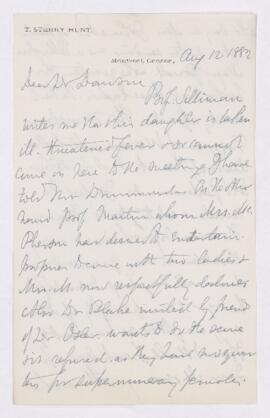 T. STERRY HUNT.
Montreal, Canada, Aug 12 1882
Dear Dr Dawson
Prof. Silliman
writes me that his daughter is taken
ill. threatened fever & he cannot
come in here to the meeting. I have
told Mrs Drummond. On the other
hand Prof Martin whom Mrs. Mc
Pherson had desired to entertain
proposes to come with two ladies &
Mrs. M. now respectfully declines
Also Dr Blake invited by friend
of Dr Osler wants to do the same
& is refused as they have no quar
ters for supernumerary females.